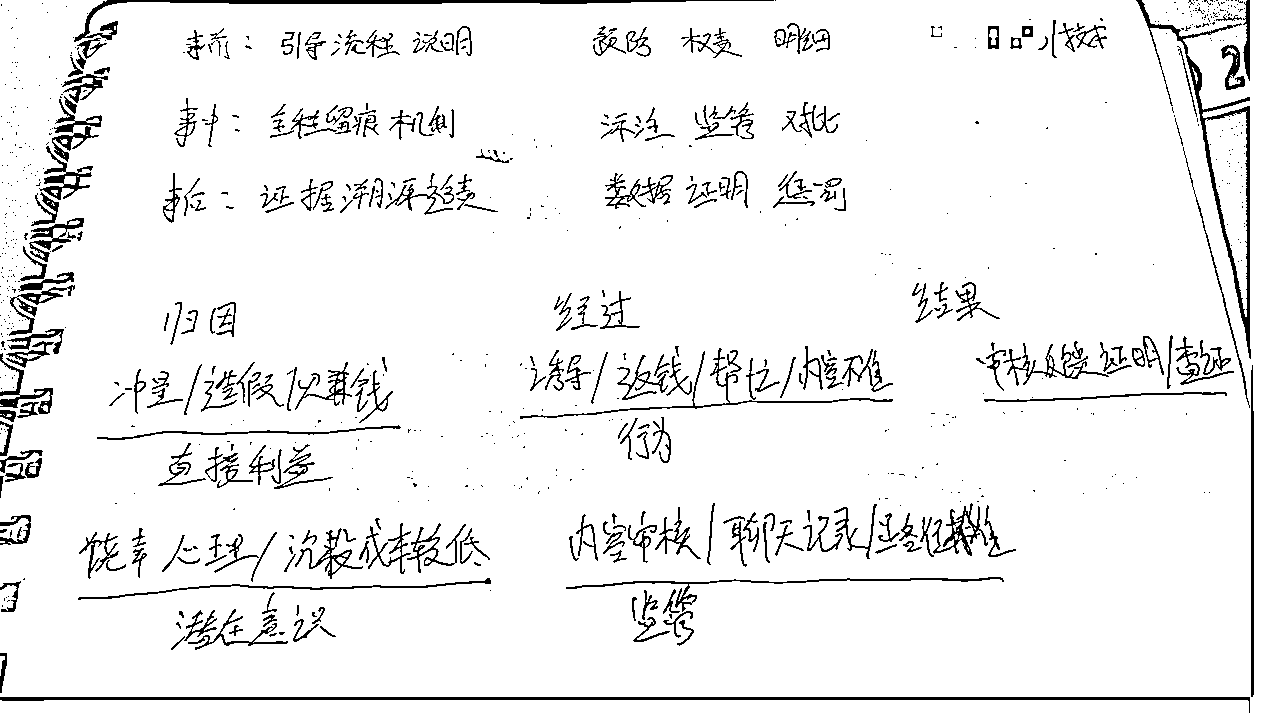 事前：引导流程 说明 预防 权责 明细 技术
事中：全程留痕机制 标注 监管 对比
事后：证据溯源追责 数据 证明 惩罚
归因 经过 结果
冲量/造假/赚钱 诱导/返钱/帮忙/内容不准 审核反馈 证明/查证
直接利益 行为
侥幸心理/沉没成本较低 内容审核/聊天记录
潜在意识 监管
2